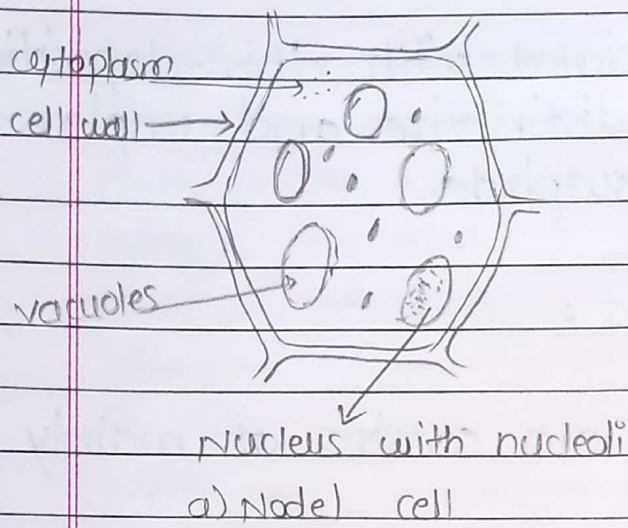 cytoplasm
cell wall
vacuoles
Nucleus with nucleoli
a) Nodel cell